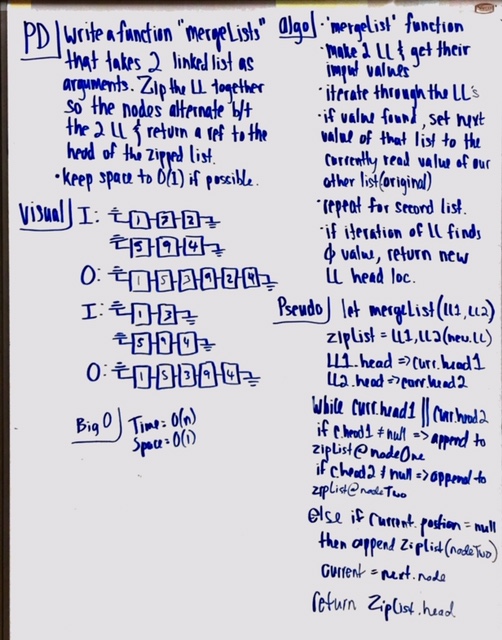 PD
Write a function "mergeLists"
that takes 2 linked list as
arguments. Zip the LL together
so the nodes alternate b/t
the 2 LL & return a ref to the
head of the zipped list.
• keep space to O(1) if possible.
Visual
I: 1 3 2
5 9 4
O: 1 5 3 9 2 4
I: 1 3
5 9 4
O: 1 5 3 9 4
Big O
Time = O(n)
Space = O(1)
algo
• 'mergeList' function
• make 2 LL & get their
input values
• iterate through the LL's
• if value found, set next
value of that list to the
currently read value of our
other list (original)
• repeat for second list.
• if iteration of LL finds
ϕ value, return new
LL head loc.
Pseudo
let mergeList(LL1, LL2)
zipList = LL1, LL2 (new.LL)
LL1.head => curr.head1
LL2.head => curr.head2
While curr.head1 || curr.head2
if c.head1 ≠ null => append to
zipList@nodeOne
if c.head2 ≠ null => append to
zipList@nodeTwo
else if current.postion = null
then append Ziplist(nodeTwo)
current = next.node
return ZipList.head